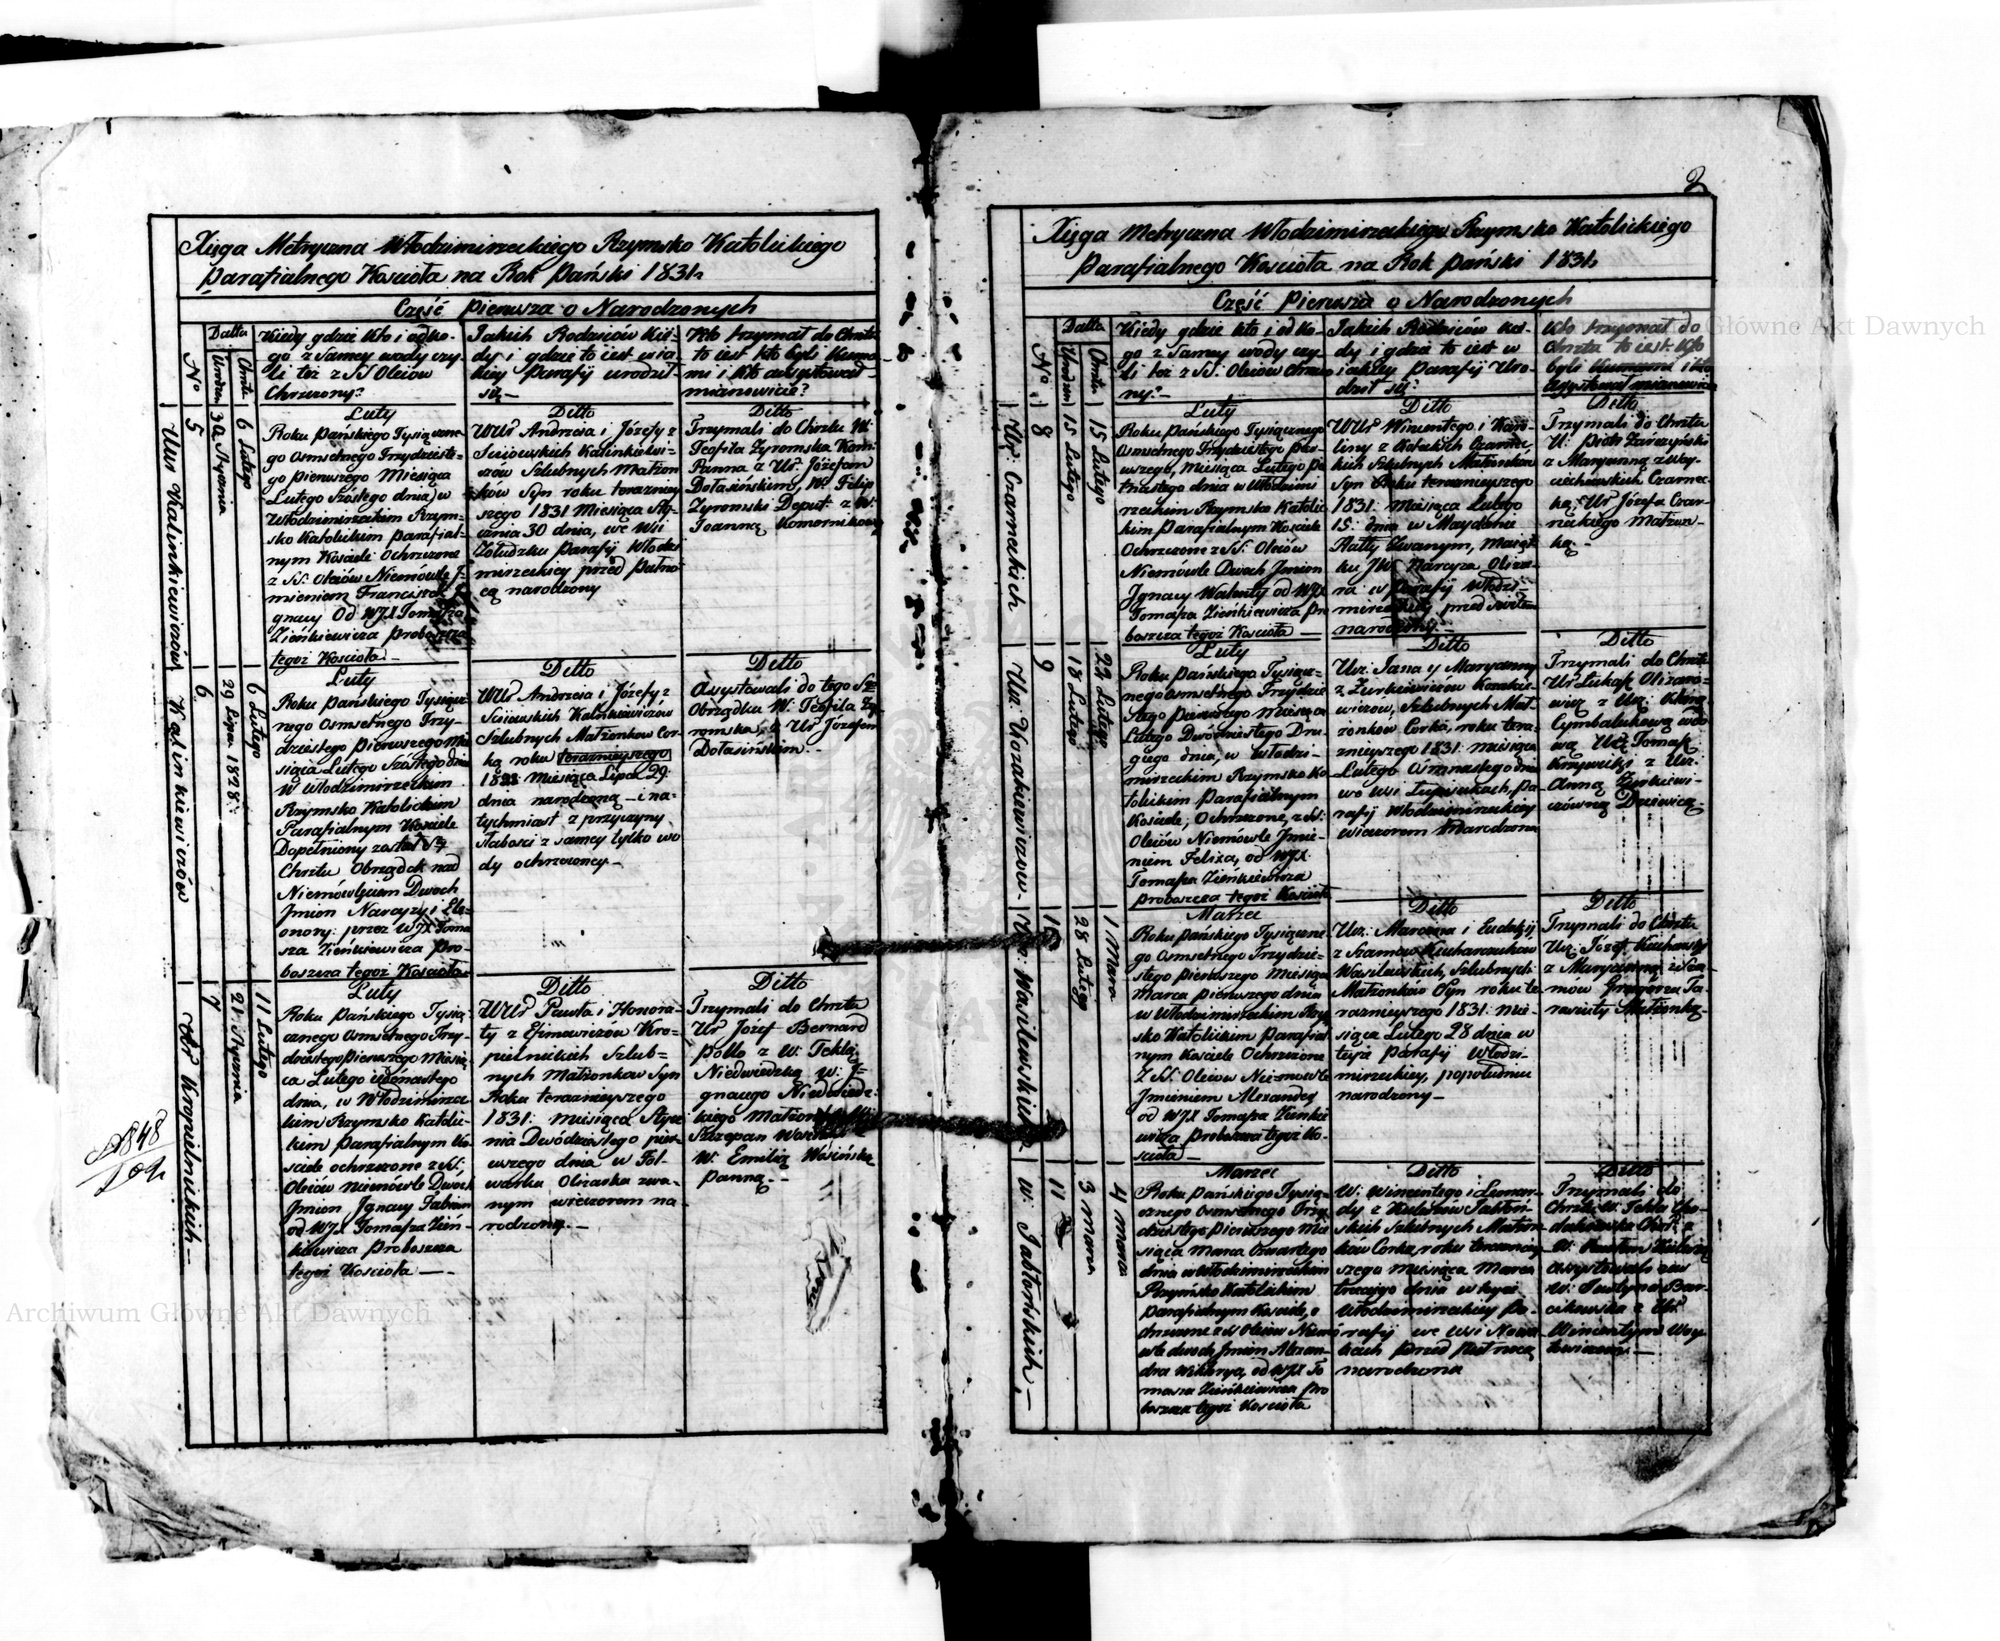 Xięga Metryczna Włodzimirzeckiego Rzymsko Katolickiego
parafialnego Koscioła na Rok Pański 1831.
Część Pierwsza o Narodzonych
Datta
Urodzen
Chrztu
N°
Kiedy gdzie kto i od ko=
go z Samey wody czy=
li też z SS. Oleiów
Chrzczony?
Jakich Rodziców kie=
dy i gdzie to iest w ia=
kiey parafij urodził
się.
Kto trzymał do Chrztu
to iest kto byli Kumo=
mi i kto assystował
mianowicie?
5
30 Stycznia
6 Lutego
Kalinkiewiczów
Luty
Roku Pańskiego Tysiączne=
go Osmsetnego Trzydzieste=
go pierwszego Miesiąca
Lutego Szóstego dnia, w
Włodzimirzeckim Rzym=
sko Katolickim parafial=
nym Kosciele Ochrzczone
z SS. Oleiów Niemówle J=
mieniem Franciszek
gnacy Od WJX Tomasza
Zieńkiewicza Proboszcza
tegoż Kosciola
Ditto
WUr Andrzeia i Józefy z
Kalinkiewi=
czów Szlubnych Małżon
ków Syn roku teraźniey
szego 1831 Miesiąca Sty=
cznia 30 dnia, we Wsi
Żołudzku Parafij Włodzi
mirzeckiey przed Pułno=
cą narodzony
Ditto
Trzymali do Chrztu W.
Teofila Zyromska Kom:
Panna z Ur. Józefem
Dołasińskim, W. Filip
Zyromski Deput z W.
Joanną
6
29 Lipca 1828
6 Lutego
Kalinkiewiczów
Luty
Roku Pańskiego Tysiącz
nego Osmsetnego Trzy=
dziestego pierwszego Mie
siąca Lutego Szóstego dnia
w Włodzimirzeckim
Rzymsko Katolickim
Parafialnym Kosciele
Dopełniony został
Chrztu Obrządek nad
Niemówlęciem Dwoch
Jmion Narcyzy i Ele=
onory przez WJX Toma
sza Zieńkiewicza Pro=
boszcza tegoż Kosciola
Ditto
WUr Andrzeia i Józefy z
Kalinkiewiczów
Szlubnych Małżonkow Cor
ką roku teraźnieyszego
Miesiąca Lipca 29
dnia narodzoną i na=
tychmiast z przyczyny
słabosci z samey tylko wo
dy ochrzczoney
Ditto
Assystowali do tego
Obrządku W. Teofila Zy=
romska, z Ur Józefem
Dołasińskim
7
21 Stycznia
11 Lutego
Ur Kropielnickich
Luty
Roku Pańskiego Tysią
cznego Osmsetnego Trzy=
dziestego pierwszego Miesią=
ca Lutego iedenastego
dnia, w Włodzimirzec
kim Rzymsko Katolic=
kim Parafialnym Ko
sciele ochrzczone z SS.
Oleiów niemówle Dwoch
Jmion Jgnacy Fabian
od WJX Tomasza Zień=
kiewicza Proboszcza
tegoż Kosciola
Ditto
WUr Pawła i Honora=
ty z Efimowiczów Kro=
pielnickich Szlub=
nych Małżonkow Syn
Roku teraźnieyszego
1831 Miesiąca Stycz
nia Dwódziestego pier
wszego dnia w Fol=
warku zwa=
nym wieczorem na
rodzony
Ditto
Trzymali do Chrztu
Ur Józef Bernard
Pollo z W. Teklą
Niedwiedzką W: J=
gnacego Niedwiedz=
kiego Małżonką
Szczepan
W: Emilią
Panną
1848
Xięga Metryczna Włodzimirzeckiego Rzymsko Katolickiego
parafialnego Kosciola na Rok Pański 1831.
2
Część Pierwsza o Narodzonych
Datta
Urodzen
Chrztu
N°
Kiedy gdzie kto i od ko=
go z Samey wody czy=
li też z SS. Oleiów Chrzczo
ny?
Jakich Rodziców kie=
dy i gdzie to iest w
iakiey parafij Uro=
dził się?
Kto trzymał do
Chrztu to iest kto
byli Kumami i kto
assystował mianowicie
8
15 Lutego
15 Lutego
Czarneckich
Luty
Roku Pańskiego Tysiącznego
Osmsetnego Trzydziestego Pier=
wszego, Miesiąca Lutego Pię
tnastego dnia w Włodzimi
rzeckim Rzymsko Katolic
kim Parafialnym Kosciele
Ochrzczone z SS. Oleiów
Niemówle Dwoch Jmion
Jgnacy Walenty od WJX
Tomasza Zieńkiewicza Pro
boszcza tegoż Kosciola
Ditto
WUr Wincentego i Karo=
liny z Czarnec
kich Szlubnych Małżonków
Syn Roku teraźnieyszego
1831 Miesiąca Lutego
15 dnia w Maydanie
Hatty zwanym, Maiąt
ku JW. Narcyza Oliza=
ra w Parafij Włodzi=
mirzeckiey przed
narodzony
Ditto
Trzymali do Chrztu
U: Piotr Zarczyński
z Maryanną z Woy=
ciechowskich Czarnec=
ką, Ur Józefa Czar=
neckiego Małżon=
ką
9
18 Lutego
22 Lutego
Ur: Kozakiewiczow
Luty
Roku Pańskiego Tysiącz=
nego Osmsetnego Trzydzie
stego pierwszego Miesiąca
Lutego Dwódziestego Dru=
giego dnia, w Włodzi=
mirzeckim Rzymsko Ka=
tolickim Parafialnym
Kosciele, Ochrzczone, z SS.
Oleiów Niemówle Jmie=
niem Felixa, od WJX
Tomasza Zieńkiewicza
Proboszcza tegoż Kosciola
Ditto
Ur: Jana y Maryanny
z Żurkiewiczów Kozakie
wiczow, Szlubnych Mał=
żonków Corka, roku tera=
źnieyszego 1831 Miesiąca
Lutego Osmnastego dnia
we Wsi Pa
rafij Włodzimirzeckiey
wieczorem Narodzona
Ditto
Trzymali do Chrztu
Ur Łukasz Olizaro=
wicz z Ur:
Cymbalukową wdo
wą Ur Tomasz
z Ur.
Anną Żurkiewi=
czówną Dziewicą
10
28 Lutego
1 Marca
Wasilewskich
Marzec
Roku Pańskiego Tysiączne
go Osmsetnego Trzydzie=
stego Pierwszego Miesiąca
Marca Pierwszego dnia
w Włodzimirzeckim Rzym
sko Katolickim Parafial
nym Kosciele Ochrzczone
z SS. Oleiow Niemowle
Jmieniem Alexander
od WJX Tomasza Zieńkie
wicza Proboszcza tegoż Ko=
sciola
Ditto
Ur: Marcina i Eudoxij
Wasilewskich, Szlubnych
Małżonków Syn roku te
raźnieyszego 1831 Mie=
siąca Lutego 28 dnia w
teyże Parafij Włodzi=
mirzeckiey, popołudniu
narodzony
Ditto
Trzymali do Chrztu
Ur: Józef
z Maryanną
Grzegorza Ta=
Małżonką
11
3 Marca
4 Marca
W: Jabłońskich
Marzec
Roku Pańskiego Tysią=
cznego Osmsetnego Trzy
dziestego pierwszego Mie
siąca Marca Czwartego
dnia w Włodzimirzeckim
Rzymsko Katolickim
Parafialnym Kosciele, o
chrzczone z SS Oleiów Niem
ówle dwoch Jmion Alexan=
dra Wiktorya, od WJX To
masza Zieńkiewicza Pro
boszcza tegoż Kosciola
Ditto
W: Wincentego i Leonar=
dy z Jabłoń=
skich Szlubnych Małżon
ków Corka roku teraźniey
szego Miesiąca Marca
trzeciego dnia w teyże
Włodzimirzeckiey Pa=
rafij we Wsi
przed Północą
narodzona
Ditto
Trzymali do
Chrztu W. Tekla
z
W.
Assystowali
W. Justyna Bar=
cikowska z Ur
Wincentym Woy
Archiwum Główne Akt Dawnych
Archiwum Główne Akt Dawnych